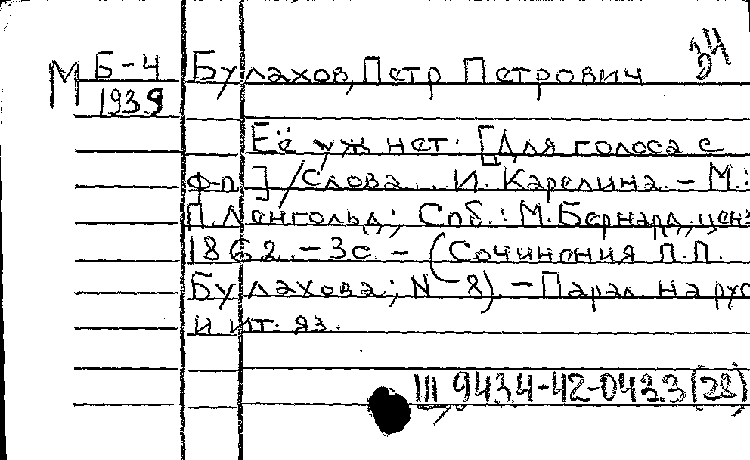 34
М Б-4 Булахов, Петр Петрович
1939
Её уж нет. [Для голоса с
ф-п.] / Слова И. Карелина. - М.:
П. Ленгольд; Спб.: М. Бернард, ценз.
1862. - 3с. - (Сочинения П.П.
Булахова; N-8). - Парал. на рус
и ит. яз.
III 9434-42-0433 (28)